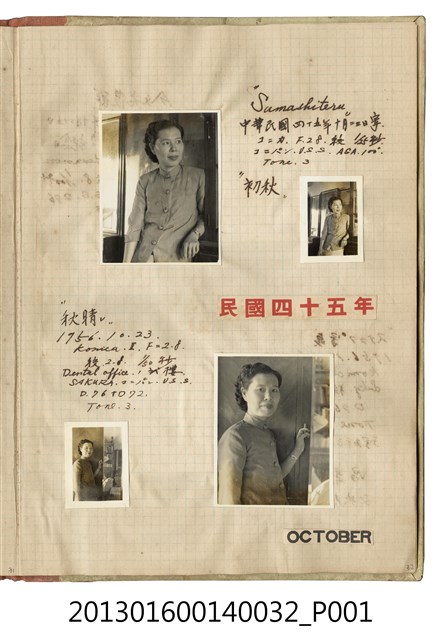 "Sumashiteru"
中華民國四十五年十月二十三日寫
コニカ. F.2.8. 1/50秒
コニパン. U.S.S. ASA.100°
Tone. 3
"初秋"
民國四十五年
"秋晴"
1956.10.23.
Konica. II. F=2.8.
絞 2.8. 1/50秒
Dental office.
SAKURA.コニパン.U.S.S.
D.76 TO 72.
Tone.3.
OCTOBER
201301600140032_P001